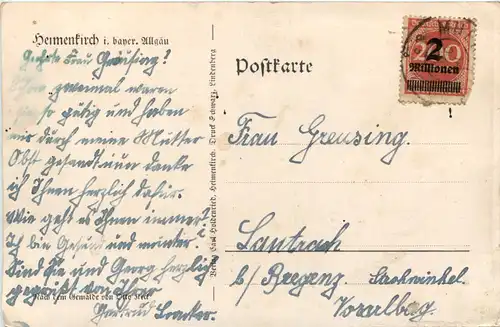 Heimenkirch i. bayer. Allgäu
Geehrte Frau Gräusing!
Schon zweimal waren
Sie so gütig und haben
mir durch meine Mutter
Obst gesandt nun danke
ich Ihnen herzlich dafür.
Wie geht es Ihnen immer?
Ich bin Gesund und munter!
Sind Sie und Georg herzlich
gegrüßt von Ihrer
Nach dem Gemälde von Otto
Gertrud
Verlag Gasl. Holdenried, Heimenkirch. Druck Schwarz, Lindenberg
Postkarte
2
Millionen
Frau Greusing
Lautrach
b/ Bregenz.
Vorarlbag.